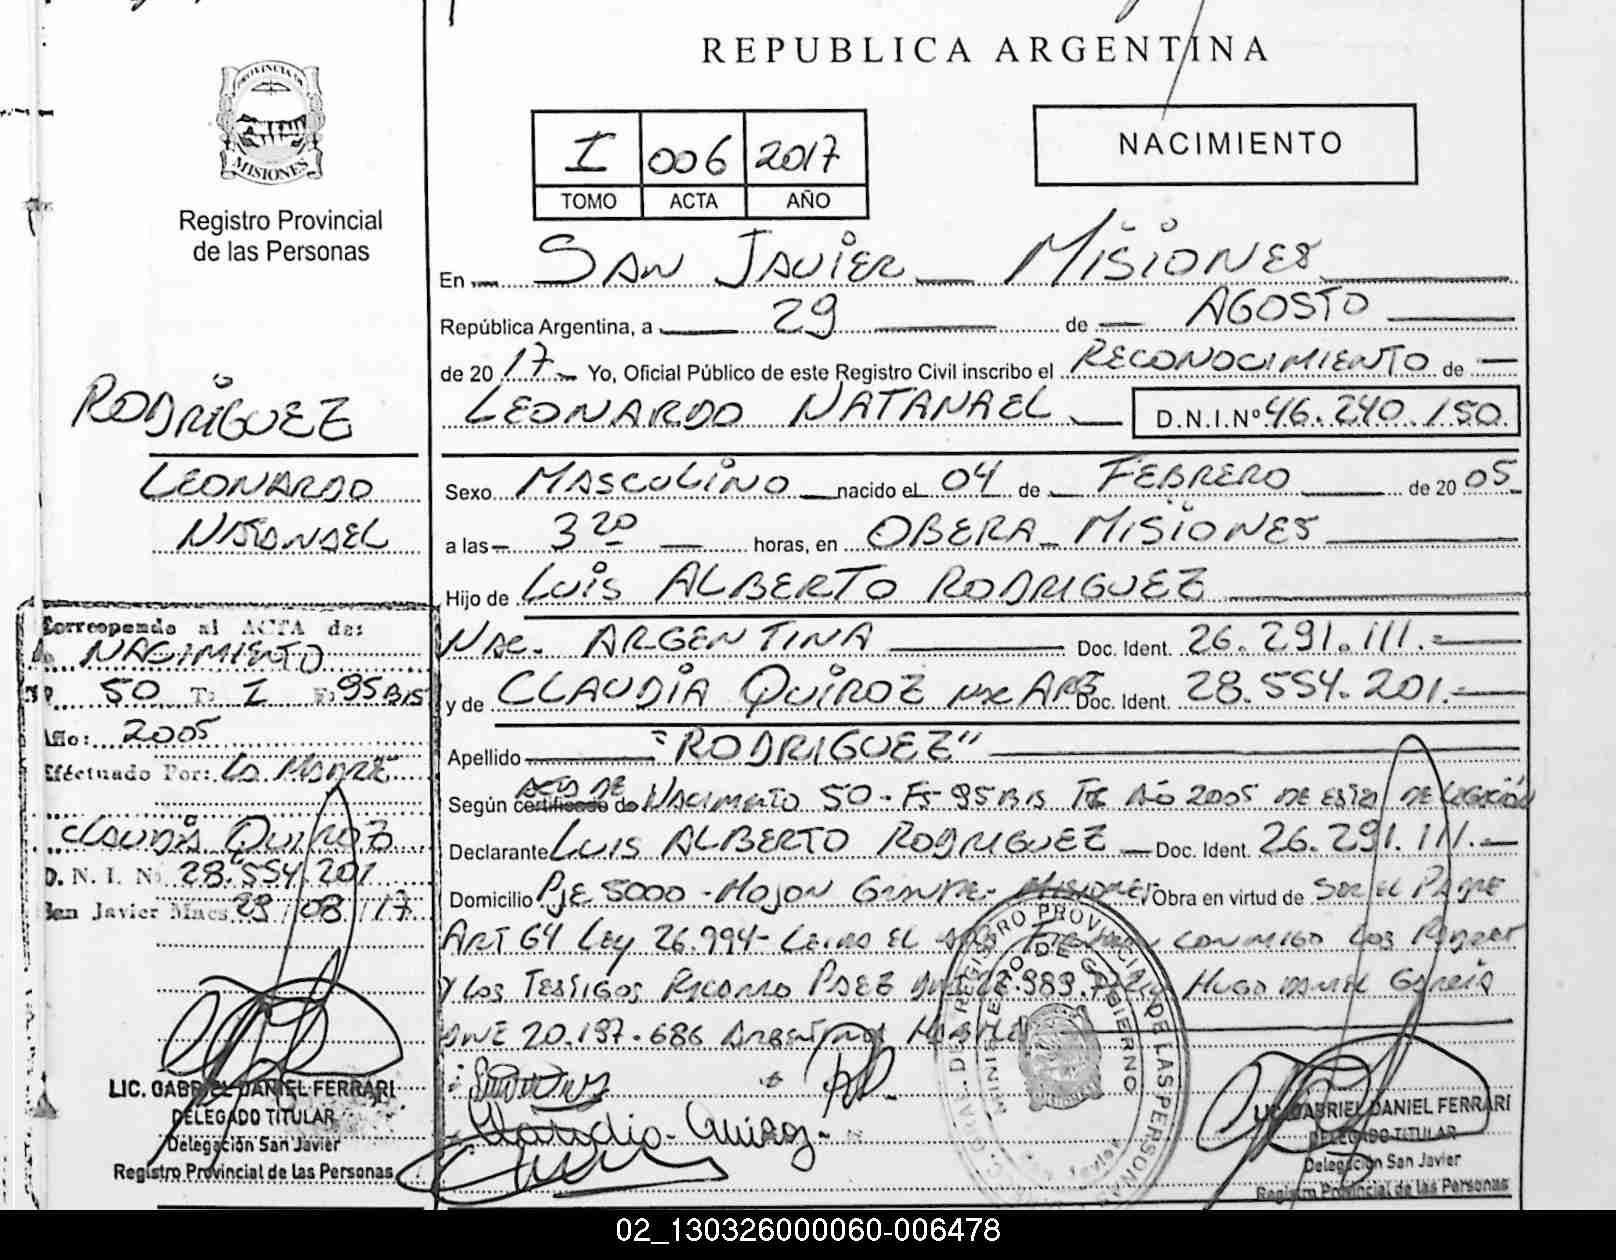 REPUBLICA ARGENTINA
PROVINCIA DE
MISIONES
Registro Provincial
de las Personas
I 006 2017
TOMO ACTA AÑO
NACIMIENTO
En SAN JAVIER MISIONES
República Argentina, a 29 de AGOSTO
de 2017 Yo, Oficial Público de este Registro Civil inscribo el RECONOCIMIENTO de
LEONARDO NATANAEL D.N.I.Nº 46.240.150
Sexo MASCULINO nacido el 04 de FEBRERO de 2005
a las 3 20 horas, en OBERA MISIONES
Hijo de LUIS ALBERTO RODRIGUEZ
NAC. ARGENTINA Doc. Ident. 26.291.111.-
y de CLAUDIA QUIROZ NAC ARG Doc. Ident. 28.554.201.-
Apellido "RODRIGUEZ"
Según certificado de ACTA DE NACIMIENTO 50 - Fº 95 BIS Tº I AÑO 2005 DE ESTA DELEGACIÓN
Declarante LUIS ALBERTO RODRIGUEZ Doc. Ident. 26.291.111.-
Domicilio PJE 5000 - MOJON GRANDE - MISIONES Obra en virtud de SER EL PADRE
ART 64 LEY 26.994 - LEIDO EL ACTA FIRMAN CONMIGO LOS PADRES
Y LOS TESTIGOS RICARDO PAEZ HUGO DANIEL GARCIA
DNI 20.197.686 ARGENTINOS HABILES
Claudia Quiroz
REGISTRO PROVINCIAL DE LAS PERSONAS
MINISTERIO DE GOBIERNO
San Javier
LIC. GABRIEL DANIEL FERRARI
DELEGADO TITULAR
Delegación San Javier
Registro Provincial de las Personas
RODRIGUEZ
LEONARDO
NATANAEL
Corresponde al ACTA de:
NACIMIENTO
50 T: I F: 95 BIS
Año: 2005
Efectuado Por: LA MADRE
CLAUDIA QUIROZ
D. N. I. N: 28.554.201
San Javier Mnes 29/08/17
LIC. GABRIEL DANIEL FERRARI
DELEGADO TITULAR
Delegación San Javier
Registro Provincial de las Personas
02_130326000060-006478